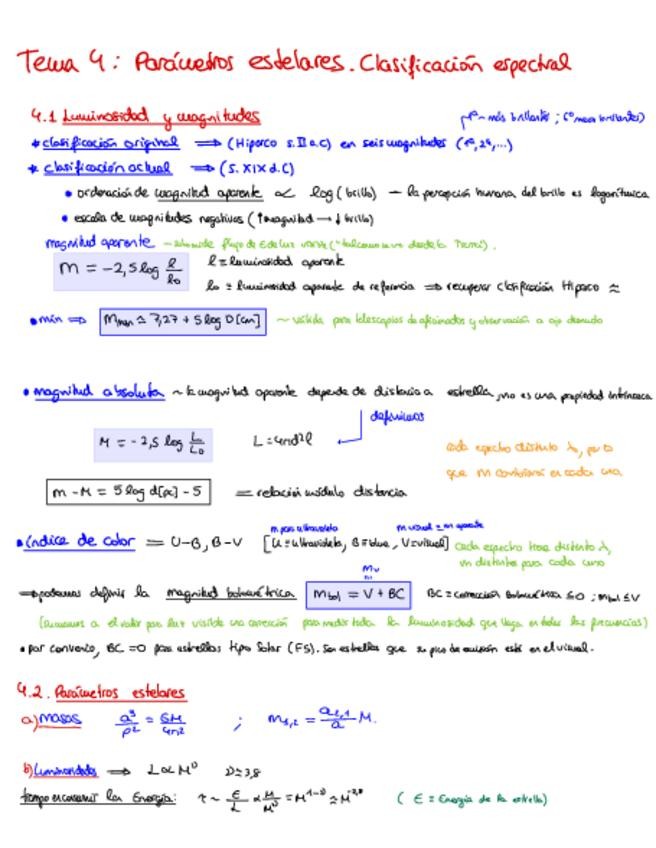 Tema 4: Parámetros estelares. Clasificación espectral
4.1 Luminosidad y magnitudes
* clasificación original ⟹ (Hiparco s.II a.C) en seis magnitudes (1ª, 2ª, ...)
* clasificación actual ⟹ (s. XIX d.C)
• ordenación de magnitud aparente ∝ log (brillo) — la percepción humana del brillo es logarítmica
• escala de magnitudes negativas (↑magnitud → ↓ brillo)
magnitud aparente
m = -2,5 log l/l₀
l ≡ luminosidad aparente
l₀ ≡ luminosidad aparente de referencia ⟹ recuperar clasificación Hiparco ≈
• mín ⟹ m ≃ 7,27 + 5 log D[cm] ~ válida para telescopios de aficionados y observación a ojo desnudo
• magnitud absoluta ~ la magnitud aparente depende de distancia a estrella, no es una propiedad intrínseca
definimos
M = -2,5 log L/L₀ L = 4πd²l
cada espectro distinto λ₀, por
que m cambiará en cada una
m - M = 5 log d[pc] - 5 ≡ relación módulo distancia
• índice de color ≡ U-B, B-V [U ≡ ultravioleta, B ≡ blue, V ≡ visual] cada espectro tiene distinto λ,
m distintas para cada uno
⟹ podemos definir la magnitud bolométrica m bol = V + BC BC ≡ corrección bolométrica ≤ 0 ; m bol ≤ V
(sumamos a el valor por luz visible una corrección para medir toda la luminosidad que llega en todas las frecuencias)
• por convenio, BC = 0 para estrellas tipo Solar (F5). Son estrellas que su pico de emisión está en el visual.
4.2. Parámetros estelares
a) masas a³/P² = GM/4π² ; m₁,₂ = a₂,₁/a M.
b) Luminosidades ⟹ L ∝ M^ν ν ≃ 3,8
tiempo en consumir la Energía: τ ~ E/L ∝ M/M^ν = M^(1-ν) ≈ M^(-2,8) (E ≡ Energía de la estrella)